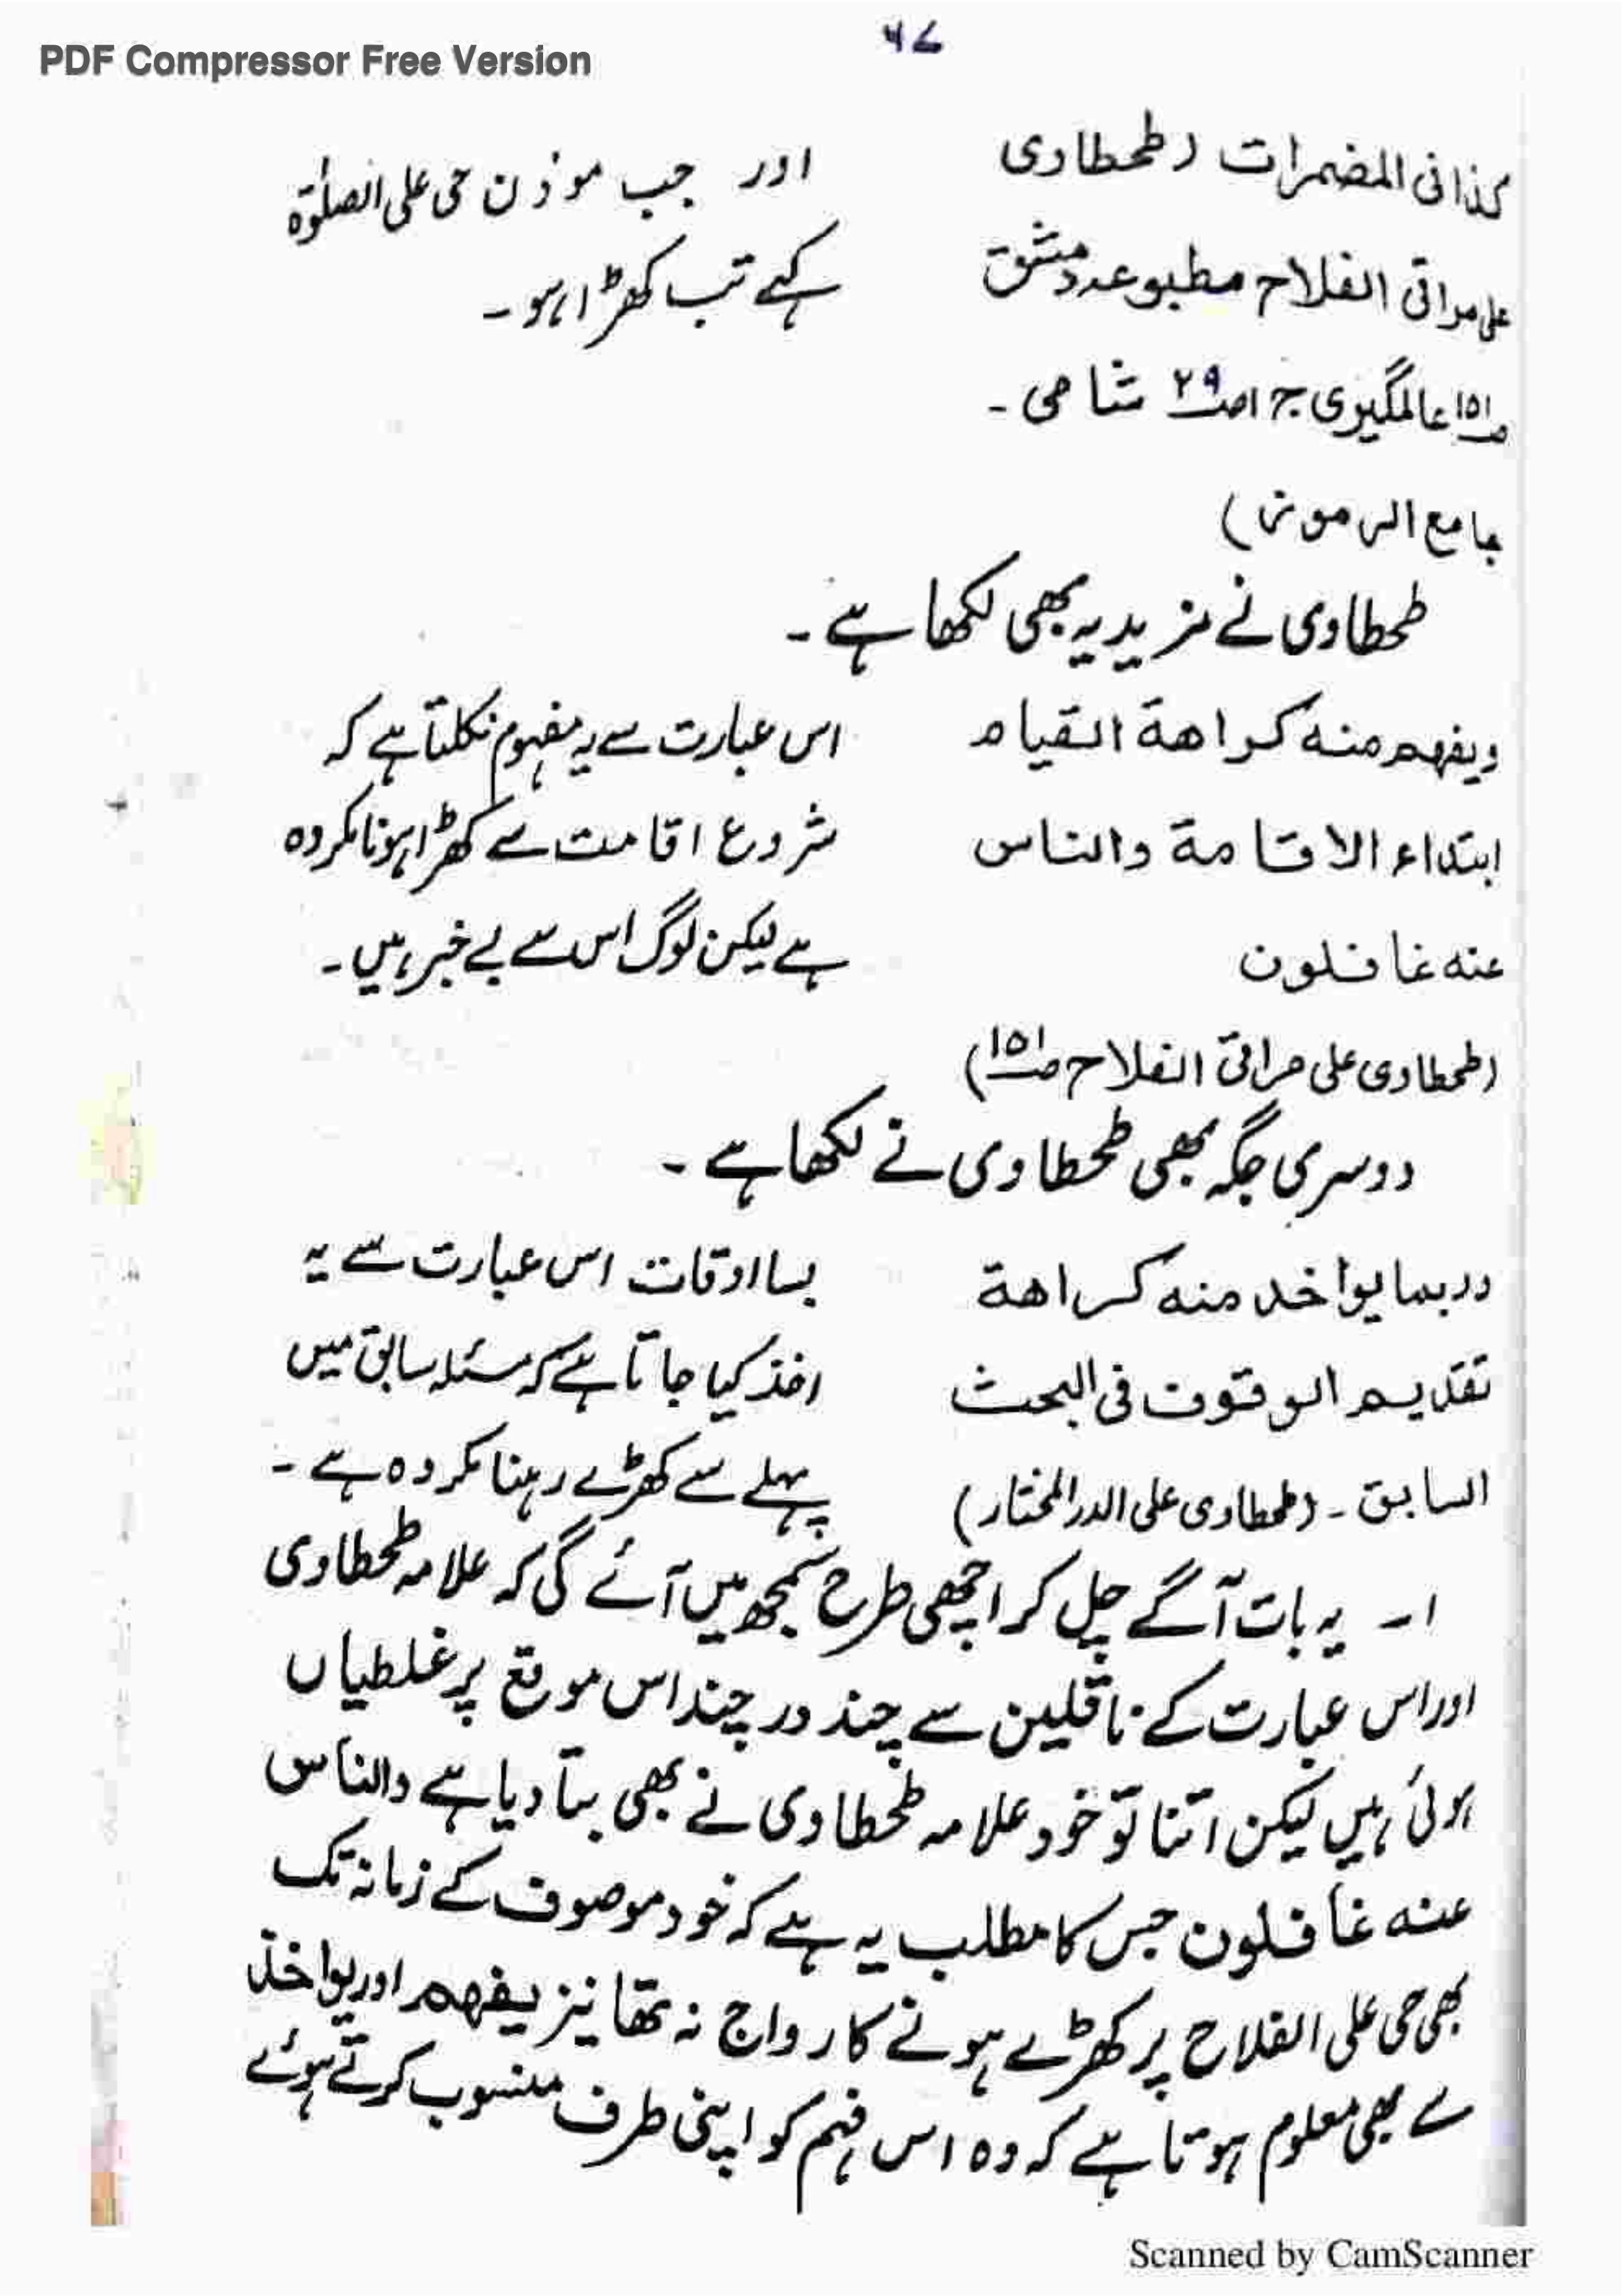 PDF Compressor Free Version
۴۷
كذا فی المضمرات (طحطاوی
علی مراقی الفلاح مطبوعہ دمشق
ص۱۵۱ عالمگیری ج ۱ ص۲۹ شامی ۔
جامع الرموز)
اور جب موذن حی علی الصلوٰۃ
کہے تب کھڑا ہو ۔
طحطاوی نے مزید یہ بھی لکھا ہے ۔
ویفهم منه کراهة القیام
ابتداء الاقامة والناس
عنه غافلون
(طحطاوی علی مراقی الفلاح ص۱۵۱)
اس عبارت سے یہ مفہوم نکلتا ہے کہ
شروع اقامت سے کھڑا ہونا مکروہ
ہے لیکن لوگ اس سے بے خبر ہیں ۔
دوسری جگہ بھی طحطاوی نے لکھا ہے ۔
وربما یواخذ منه کراهة
تقدیم الوقوف فی البحث
السابق ۔ (طحطاوی علی الدرالمختار)
بسا اوقات اس عبارت سے یہ
اخذ کیا جاتا ہے کہ مسئلہ سابق میں
پہلے سے کھڑے رہنا مکروہ ہے ۔
۱۔ یہ بات آگے چل کر اچھی طرح سمجھ میں آئے گی کہ علامہ طحطاوی
اور اس عبارت کے ناقلین سے چند در چند اس موقع پر غلطیاں
ہوئی ہیں لیکن اتنا تو خود علامہ طحطاوی نے بھی بتا دیا ہے والناس
عنه غافلون جس کا مطلب یہ ہے کہ خود موصوف کے زمانہ تک
بھی حی علی الفلاح پر کھڑے ہونے کا رواج نہ تھا نیز یفهم اور یواخذ
سے بھی معلوم ہوتا ہے کہ وہ اس فہم کو اپنی طرف منسوب کرتے ہوئے
Scanned by CamScanner